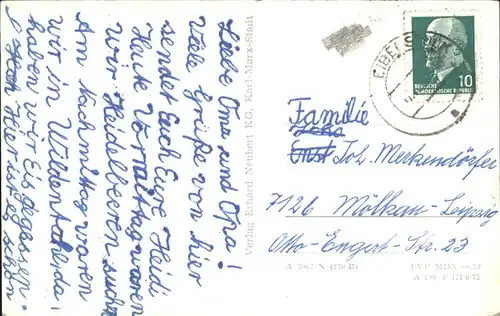 Liebe Oma und Opa!
Viele Grüße von hier
sendet Euch Eure Heidi
Heute Vormittag waren
wir Heidelbeeren suchen
Am Nachmittag waren
wir in
haben wir Eis gegessen.
Hier ist es schön.
Verlag Erhard Neubert KG, Karl-Marx-Stadt
DEUTSCHE
DEMOKRATISCHE REPUBLIK
10
Familie
Joh. Merkendörfer
7126 Mölkau-Leipzig
Otto-Engert-Str. 23
EVP MDN